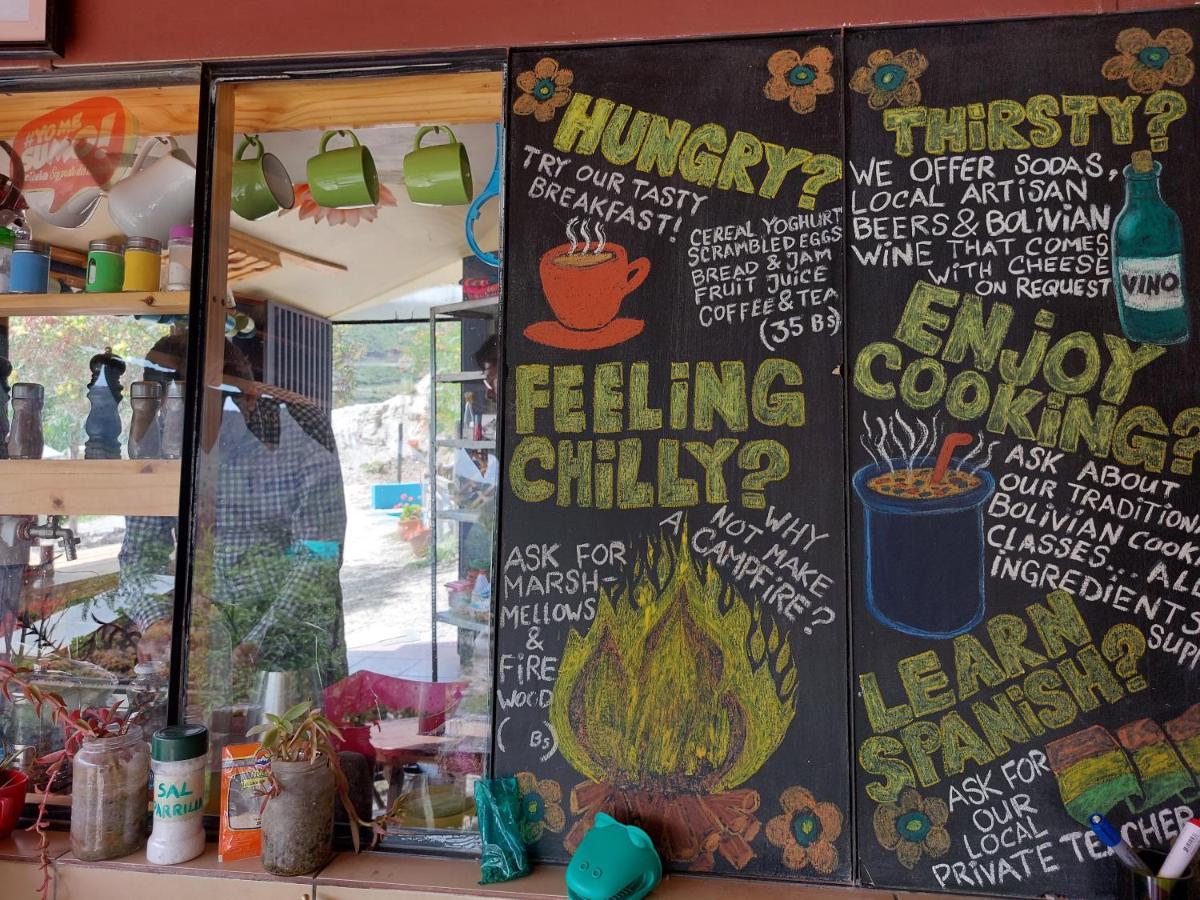 #YO ME
SUMO!
HUNGRY?
TRY OUR TASTY
BREAKFAST!
CEREAL YOGHURT
SCRAMBLED EGGS
BREAD & JAM
FRUIT JUICE
COFFEE & TEA
(35 Bs)
FEELiNG
CHiLLY?
WHY
NOT MAKE
A CAMPFIRE?
ASK FOR
MARSH-
MELLOWS
&
FiRE
WOOD
( Bs)
THiRSTY?
WE OFFER SODAS,
LOCAL ARTiSAN
BEERS & BOLiViAN
WiNE THAT COMES
WiTH CHEESE
ON REQUEST
VINO
ENjOY
COOKiNG?
ASK ABOUT
OUR TRADITION
BOLIVIAN COOK
CLASSES... ALL
INGREDIENTS
SUPP
LEARN
SPANiSH?
ASK FOR
OUR
LOCAL
PRIVATE TEACHER
SAL
PARRILL